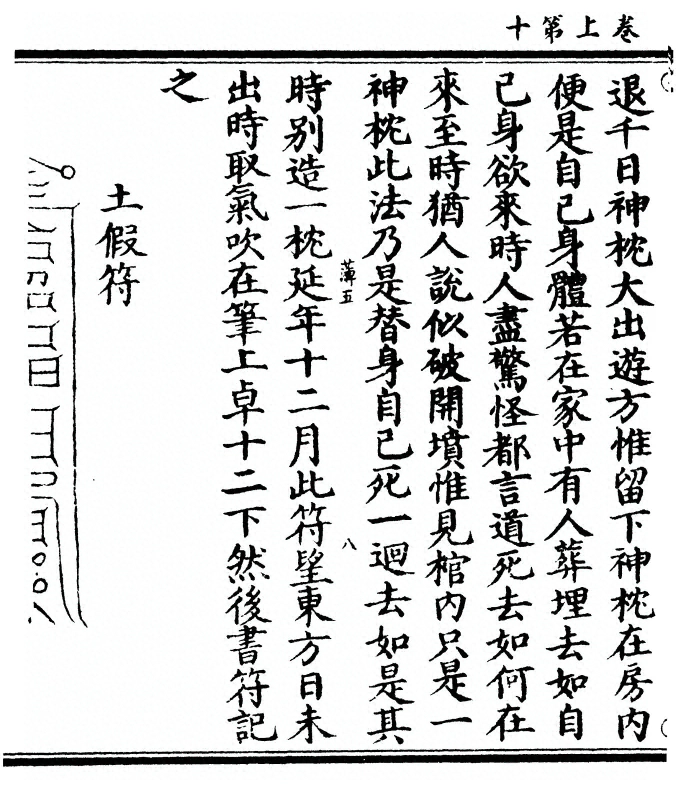 卷上第十
退千日神枕大出遊方惟留下神枕在房内
便是自己身體若在家中有人葬埋去如自
己身欲來時人盡驚怪都言道死去如何在
來至時猶人說似破開墳惟見棺内只是一
神枕此法乃是替身自己死一迴去如是其
薄五
八
時別造一枕延年十二月此符望東方日未
出時取氣吹在筆上卓十二下然後書符記
之
土假符